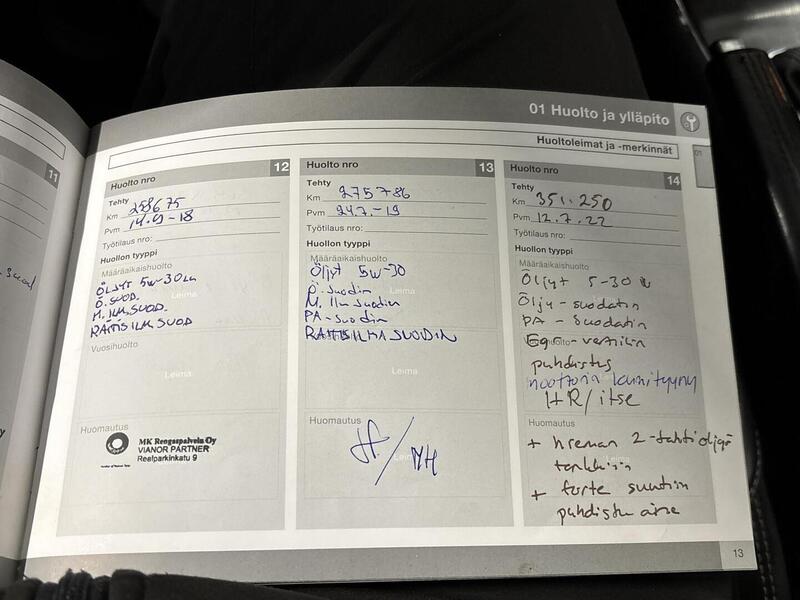 01 Huolto ja ylläpito
Huoltoleimat ja -merkinnät
01
11
Huolto nro 12
Tehty
Km 258675
Pvm 14.9-18
Työtilaus nro:
Huollon tyyppi
Määräaikaishuolto
ÖLJYT 5W-30LL
Ö.SUOD.
M.ILM.SUOD.
RAITISILM.SUOD
Leima
Vuosihuolto
Leima
Huomautus
MK Rengaspalvelu Oy
VIANOR PARTNER
Realparkinkatu 9
Huolto nro 13
Tehty
Km 275786
Pvm 24.7.-19
Työtilaus nro:
Huollon tyyppi
Määräaikaishuolto
Öljyt 5W-30
Ö-suodin
M. Ilm suodin
PA-suodin
RAITISILMASUODIN
Leima
Huomautus
/MH
Huolto nro 14
Tehty
Km 351.250
Pvm 12.7.22
Työtilaus nro:
Huollon tyyppi
Määräaikaishuolto
Öljyt 5-30
Öljy-suodatin
PA-Suodatin
Egr-venttiilin
puhdistus
moottorin
HR/itse
Huomautus
+ hieman 2-tahtiöljyä
tankkiin
+ forte suutin
puhdistu aine
13